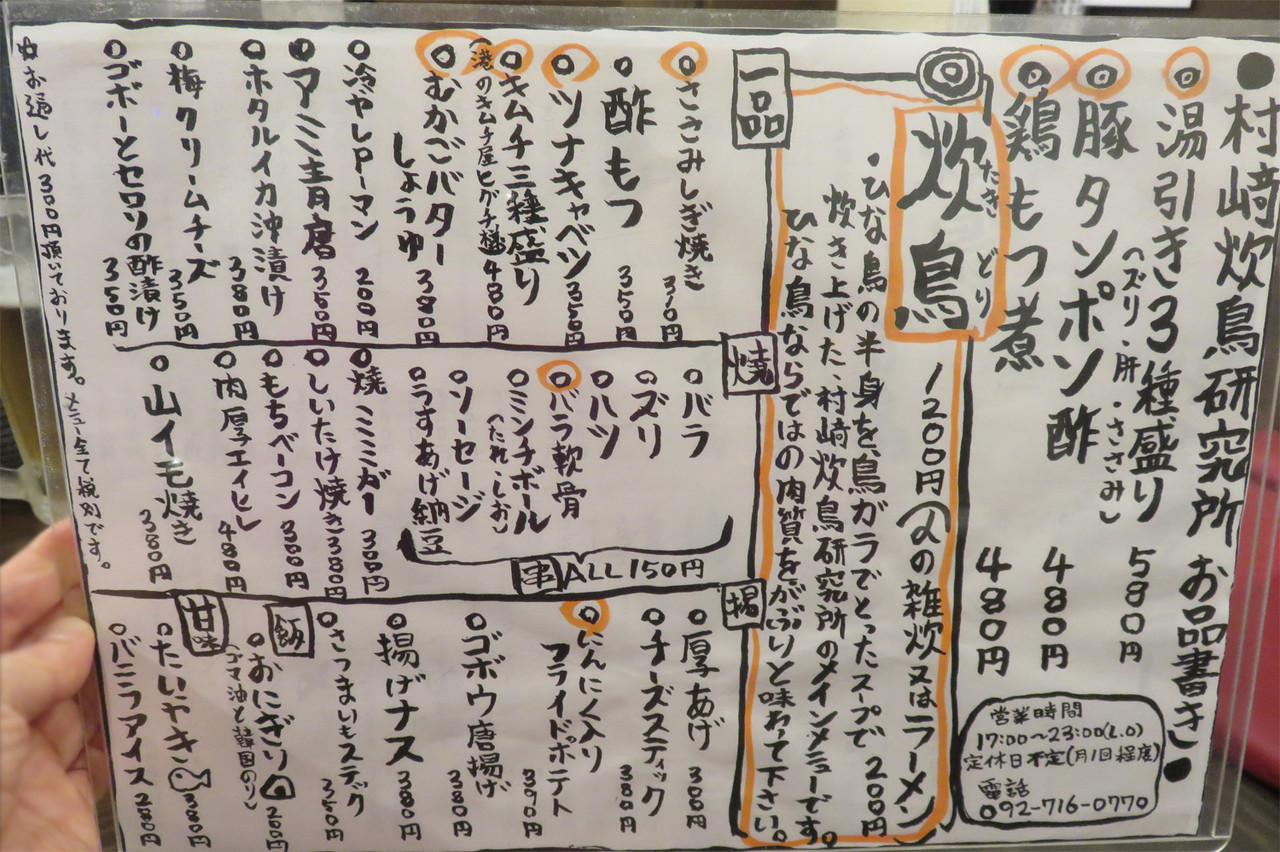 ●村崎炊鳥研究所 お品書き●
◎湯引き3種盛り 580円
(ズリ・肝・ささみ)
◎豚タンポン酢 480円
◎鶏もつ煮 480円
営業時間
17:00〜23:00(L.O)
定休日不定(月1回程度)
電話
092-716-0770
◎炊鳥 1200円 〆の雑炊又はラーメン 200円
たき どり
・ひな鳥の半身を、鳥ガラでとったスープで
炊き上げた、村崎炊鳥研究所のメインメニューです。
ひな鳥ならではの肉質をがぶりと味わって下さい。
一品
ささみしぎ焼き 310円
酢もつ 350円
ツナキャベツ 350円
キムチ三種盛り 480円
(港のキムチ屋ヒグチ
むかごバター
しょうゆ 380円
冷やしPーマン 200円
アミ青唐 350円
ホタルイカ沖漬け 380円
梅クリームチーズ 350円
ゴボーとセロリの酢漬け 350円
焼
バラ
ズリ
ハツ
バラ軟骨
ミンチボール
(たれ・しお)
ソーセージ
うすあげ納豆
串 ALL150円
焼ミミガー 300円
しいたけ焼き 380円
もちベーコン 300円
肉厚エイヒレ 480円
山イモ焼き 380円
揚
厚あげ 300円
チーズスティック 380円
にんにく入り
フライドポテト 390円
ゴボウ唐揚げ 380円
揚げナス 380円
さつまいもステック 350円
飯
おにぎり 200円
(ゴマ油と韓国のり)
甘味
たいやき 380円
バニラアイス 280円
☆お通し代300円頂いております。メニュー全て税別です。